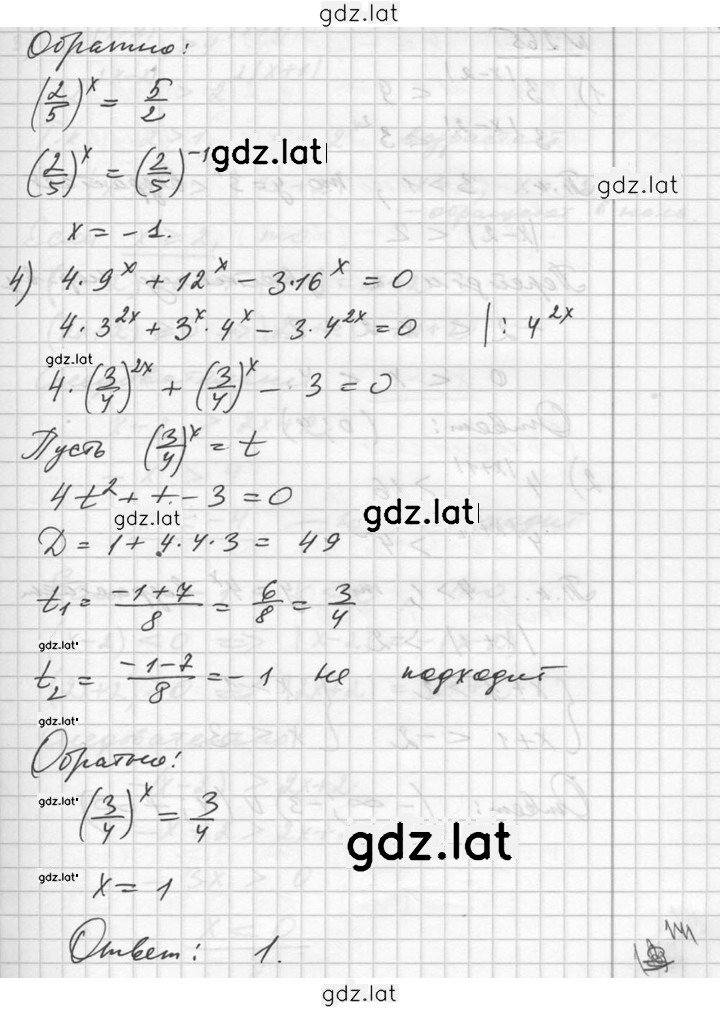 gdz.lat
Обратно:
(2/5)^x = 5/2
(2/5)^x = (2/5)^-1
gdz.lat
gdz.lat
x = -1.
4) 4·9^x + 12^x - 3·16^x = 0
4·3^2x + 3^x·4^x - 3·4^2x = 0 |: 4^2x
gdz.lat
4·(3/4)^2x + (3/4)^x - 3 = 0
Пусть (3/4)^x = t
4t² + t - 3 = 0
gdz.lat
gdz.lat
D = 1 + 4·4·3 = 49
t₁ = (-1+7)/8 = 6/8 = 3/4
gdz.lat
t₂ = (-1-7)/8 = -1 не подходит
gdz.lat
Обратно:
gdz.lat
(3/4)^x = 3/4
gdz.lat
gdz.lat
x = 1
Ответ: 1.
gdz.lat